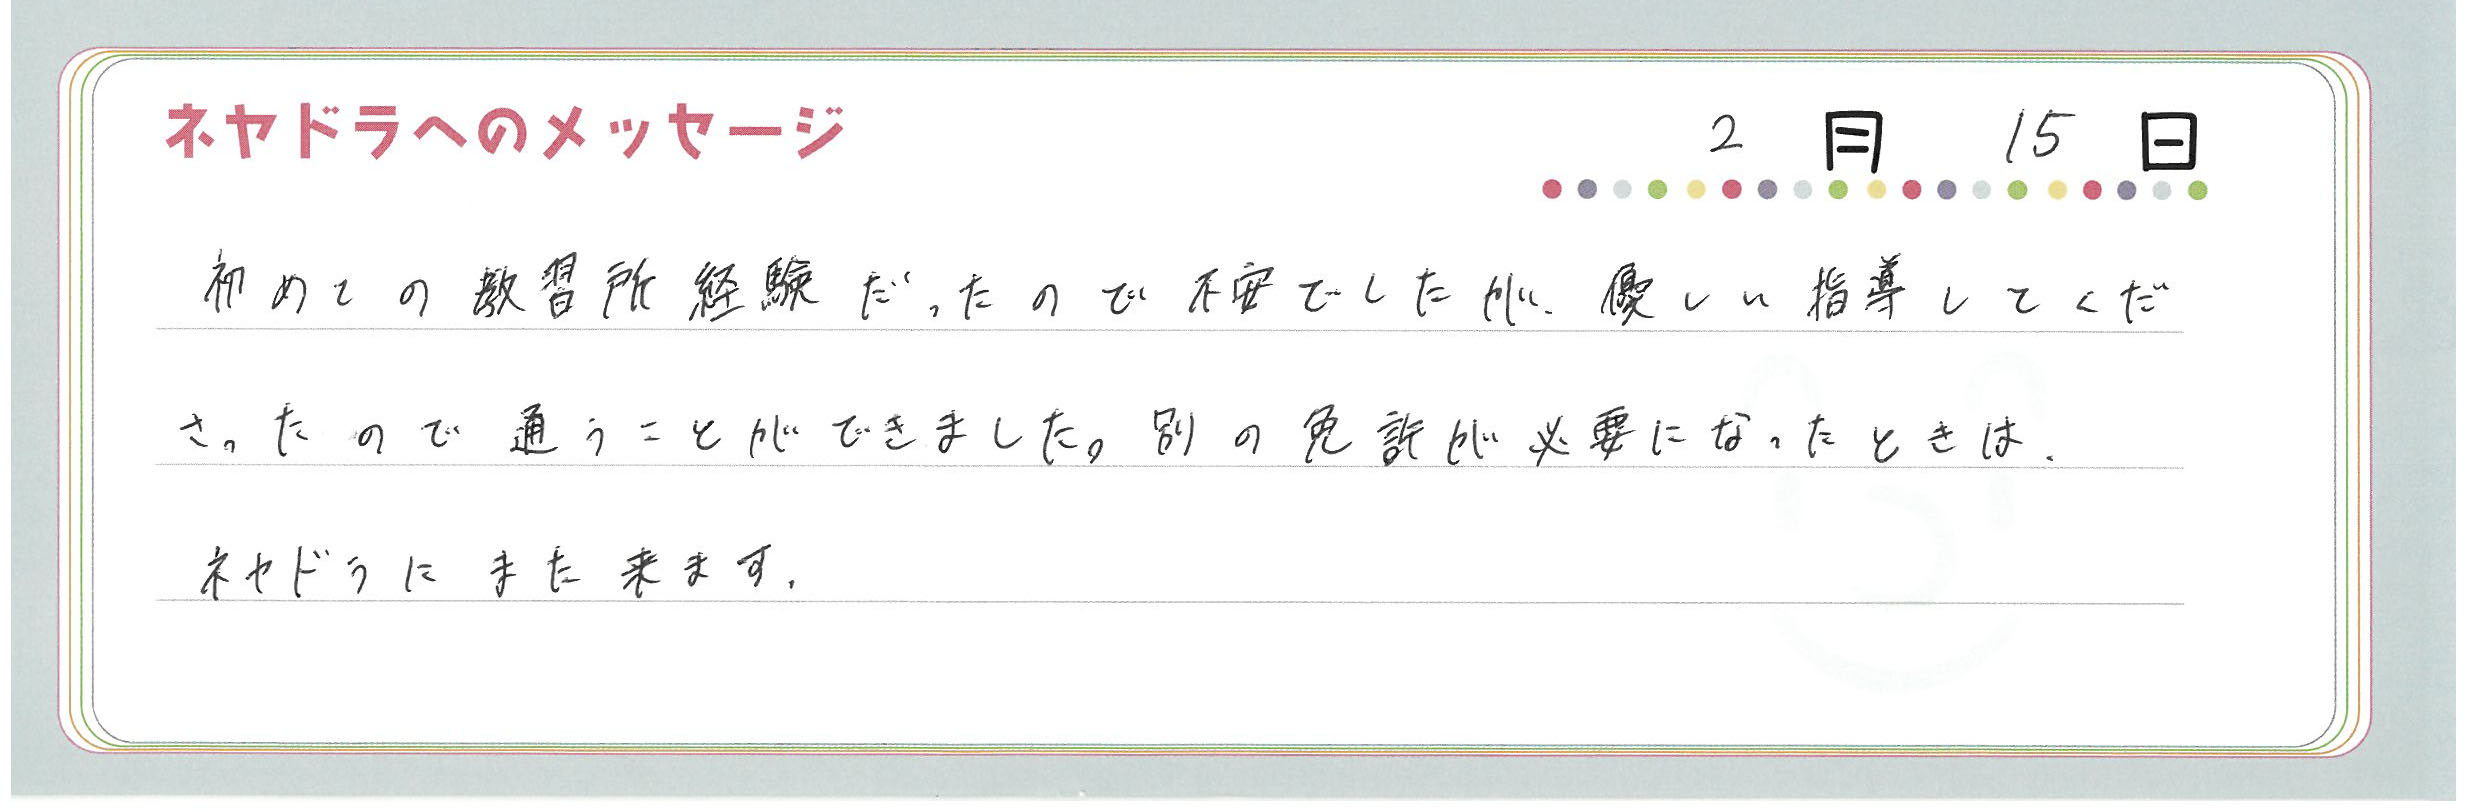 ネヤドラへのメッセージ 2月 15日
初めての教習所経験だったので不安でしたが、優しい指導してくだ
さったので通うことができました。別の免許が必要になったときは、
ネヤドラにまた来ます.